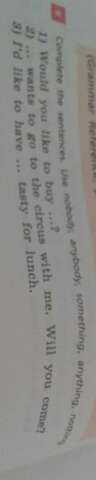 (Grammar Reference
Complete the sentences. Use nobody, anybody, something, anything,
1) Would you like to buy ...?
2) ... wants to go to the circus with me. Will you come?
3) I'd like to have ... tasty for lunch.